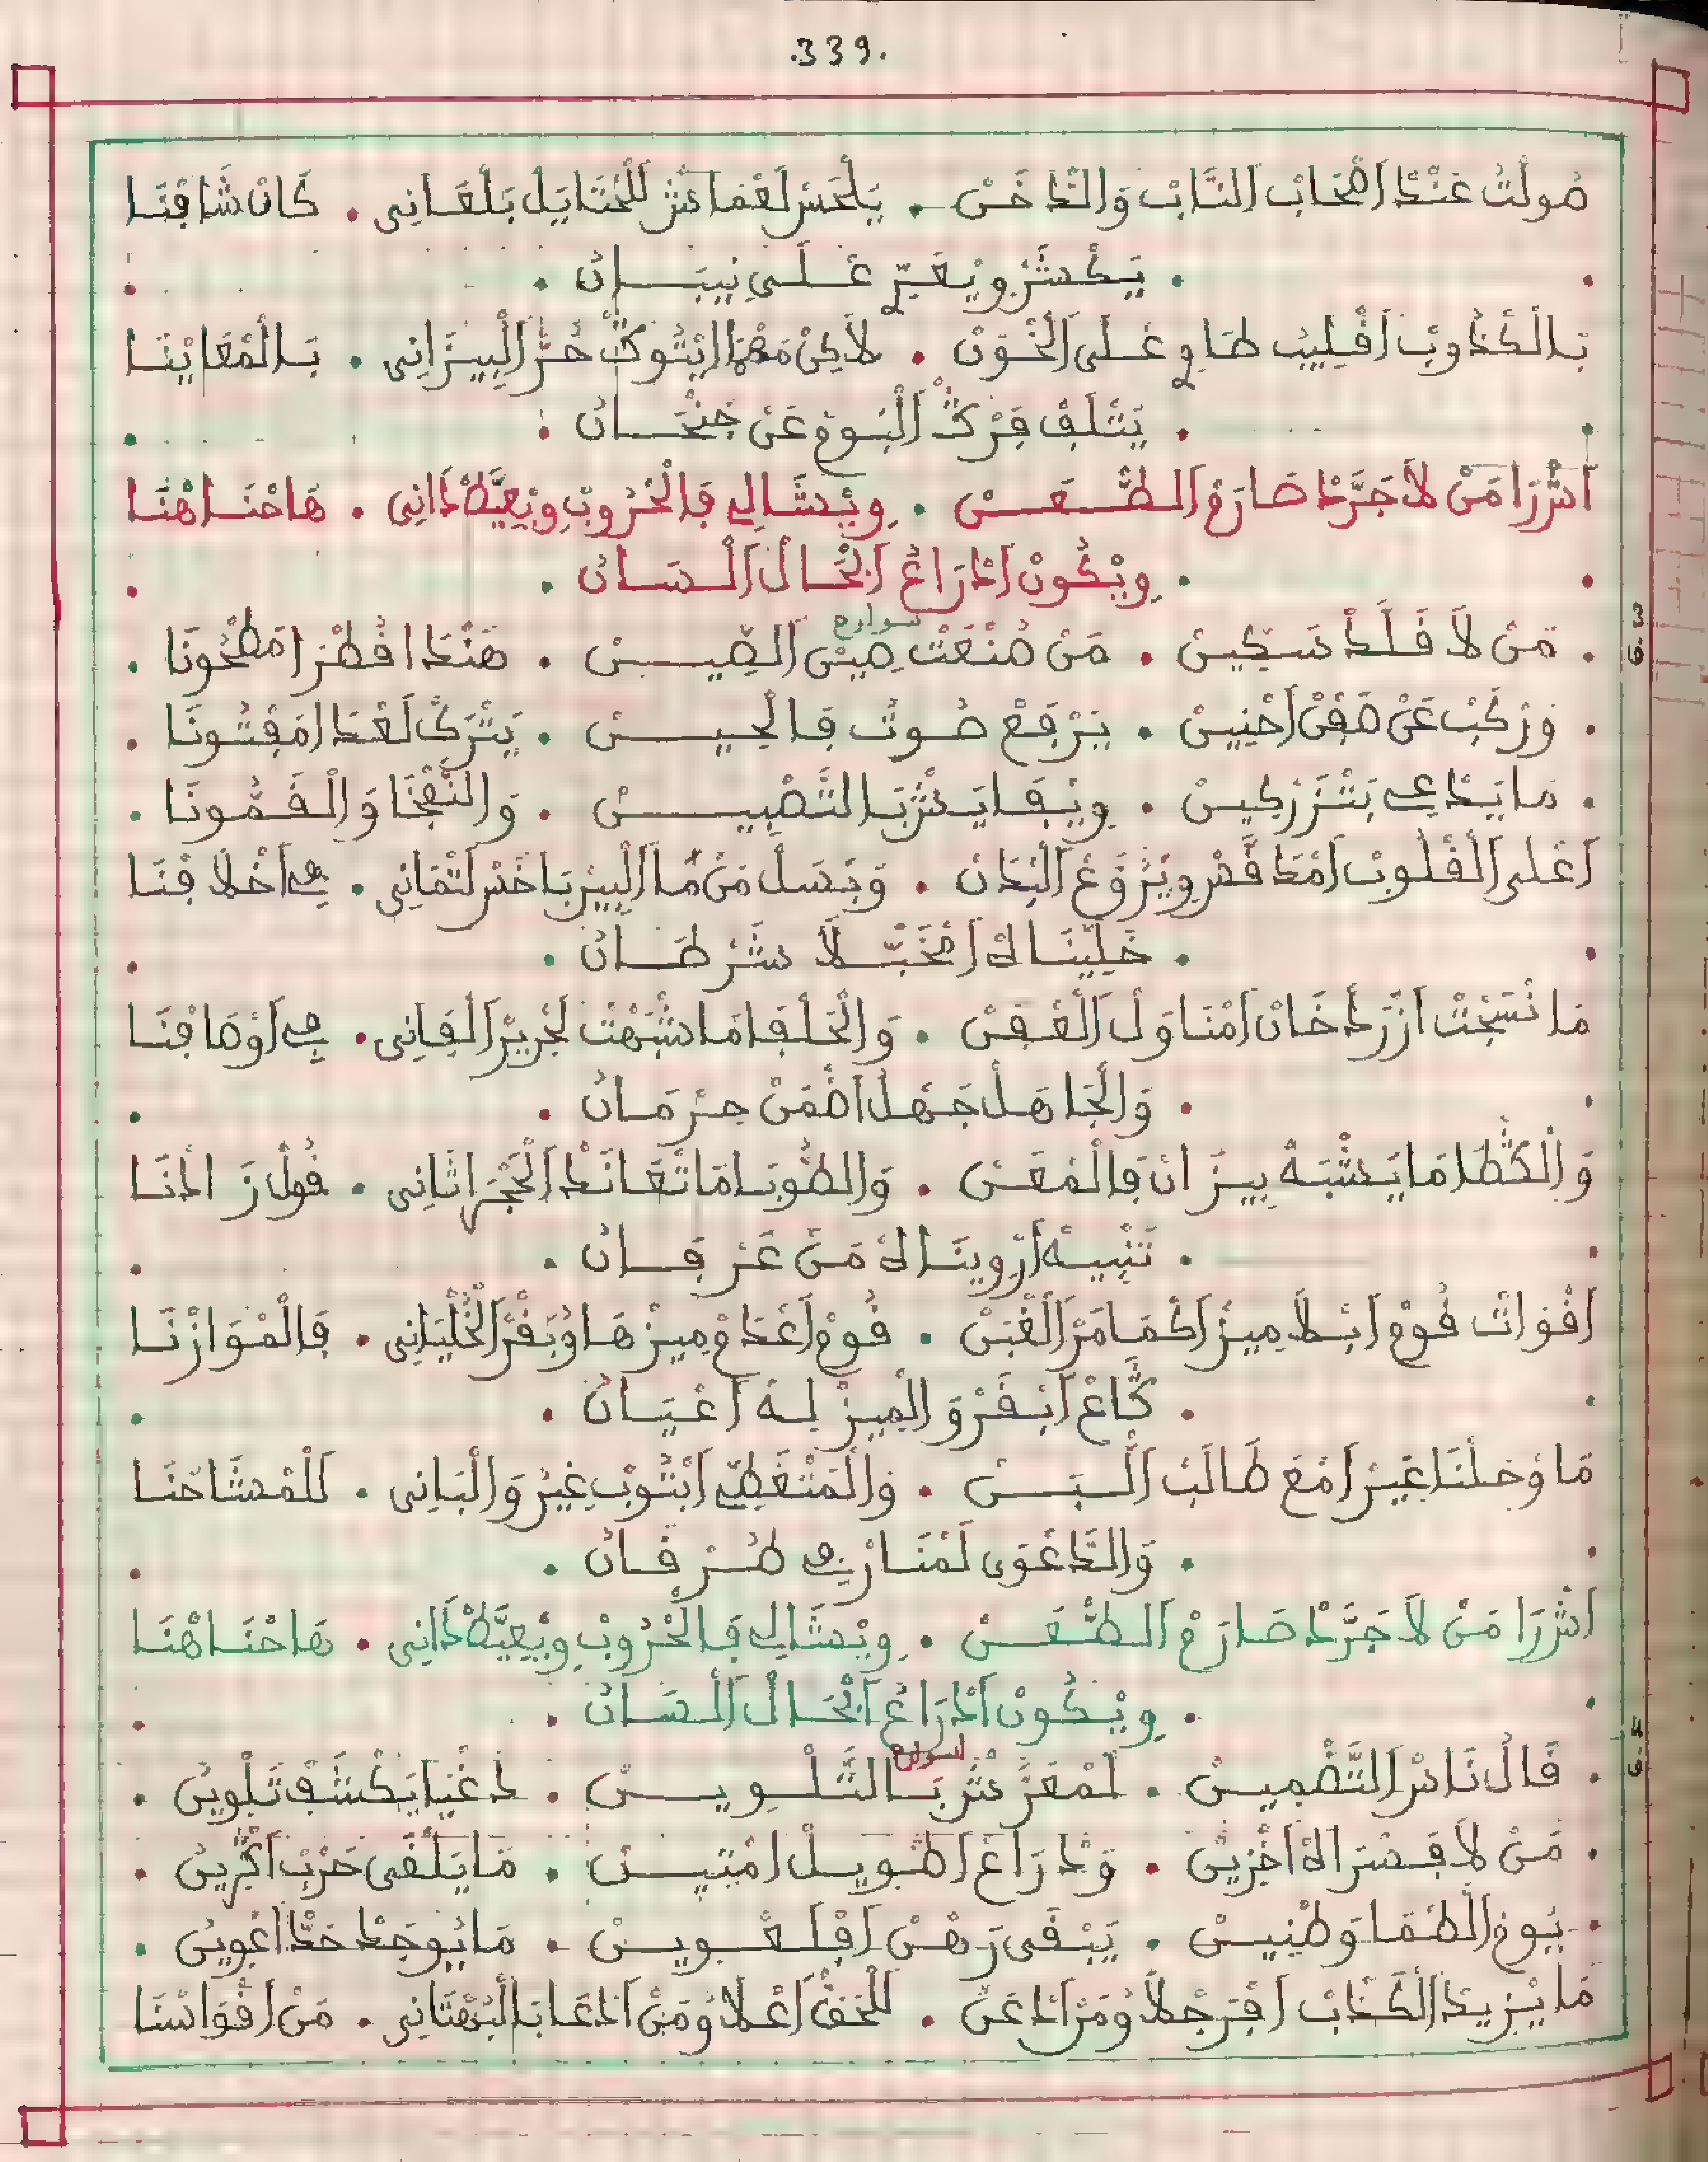 .339.
صُولْتُ عَنْدْ اَصْحَابْ النَّابْ وَالدَّخَنْ . يَلْحَسْ لَعْمَاشْ لَلْحَتَايَلْ بَلْعَانِي . كَانْ شَافْنَا
. يَكْشَرْ وِيْغَبَّرْ عَلَى نِيبَانُ .
بَالْكْذُوبْ اَقْلِيبُ طَاوِي عَلَى الْخُوَنْ . لَاكِنْ مَهْمَا اِيْتُوكْ حُرّْ الْبِيزَانِي . بَالْمْعَايْنَا
. يَتْلَفْ فَرْكْ الْبُومْ عَنْ جَنْحَانُ .
اَشْ رَا مَنْ لَا جَرَّدْ صَارَمْ الطّْعَنْ . وِيْشَالِي فَالْحْرُوبْ وِيْعَيَّطْ دَانِي . هَاحْنَا هْنَا
. وِيْكُونْ اَدْرَاعُ اَبْحَالْ اَلْسَانُ .
سوارح
. مَنْ لَا قَلَّدْ سَكِّينْ . مَنْ صُنْعَتْ صِينْ الصِّينْ . هَنْدَا اقْطَرْ امَطْحُونَا .
. وَرْكَبْ عَنْ صَفْنْ اَحْنِينْ . يَرْفَعْ صُوتُ فَالْحِينْ . يَتْرَكْ لَعْدَا اَمَفْتُونَا .
. مَا يَدْعِي بَتْزَرْكِينْ . وِيْقَايَشْ بَالتَّصْبِينْ . وَالنَّفْخَا وَالْقَمُّونَا .
اَعْلَى الْقْلُوبْ اَمْدَقَّسْ وِيْرَوَّعْ الْبْدَانْ . وَيَسَلْ مَنْ مَا الْبِيرْ بَاخَسْ لَثْمَانِي . فِي اَخْلَاقْنَا
. خَلِّينَا لُهْ اَمْخَبَّلْ لَا شَرْطَانُ .
مَا نَسْجَتْ اَزَّرْدْخَانْ اَمْنَاوَلْ الْعْفَنْ . وَالْحَلْفَا مَا شْبَهْتْ لَحْرِيرْ الْفَانِي . فِي اَوْصَافْنَا
. وَالْجَاهَلْ جَهْلُ اَضْمَنْ حِرْمَانُ .
وَالْكَشْطَا مَا يَشْبَهْ بِيزَانْ فَالْمْعَنْ . وَالطُّوبَا مَا تْعَانَدْ الْحْجَرْ اثَّانِي . قُولْ زَادْنَا
. تَنْبِيهْ اَرْوِينَا لُهْ مَنْ عَرْفَانُ .
اَقْوَاتْ قُومْ اَبْلَا مِيزْ اَكْمَا مَرْ الْغْبَنْ . قُومْ اَعْدَامْ مِيزْهَا وُبَقْرْ الْخْلْيَانِي . فَالْمْوَازْنَا
. كَّاعْ اَبْقَرْ وَالْمِيزْ لِهْ اَعْيَانُ .
مَا وْحَلْنَا غِيرْ اَمْعَ طَالَبْ الْبَنْ . وَالْمَتْغَطِّي اَبْثُوبْ غِيرُ وَالْبَانِي . لَلْمْشَاحْنَا
. وَالدَّعْوَى لَمْنَازْ فِي طُرْقَانُ .
اَشْ رَا مَنْ لَا جَرَّدْ صَارَمْ الطّْعَنْ . وِيْشَالِي فَالْحْرُوبْ وِيْعَيَّطْ دَانِي . هَاحْنَا هْنَا
. وِيْكُونْ اَدْرَاعُ اَبْحَالْ اَلْسَانُ .
اسوارح
. قَالْ نَاسْ التَّضْمِينْ . لَمْعَزّْشْ بَالتَّلْوِينْ . دَغْيَا يَكْشَفْ تَلْوِينُ .
. مَنْ لَا فَسَّرْ الُهْ اَخْزِينْ . وَدْرَاعُ اَطْوِيلْ اَمْتِينْ . مَا يَلْقَى حَرْبْ اَكْرِينُ .
. يُومْ الطَّمَّا وَطْنِينْ . يَبْقَى رَهْنْ اَفْلَعْوِينْ . مَا يُوجَدْ حَدّْ اَعْوِينُ .
مَا يْزِيدْ الْكَذَّابْ اَفَرْجْلَا وُمَنْ اَدْعَنْ . لَلْحَقّْ اَعْلَا وُمَنْ اَدْعَا بَالْبُهْتَانِي . مَنْ اَقْوَاسْنَا